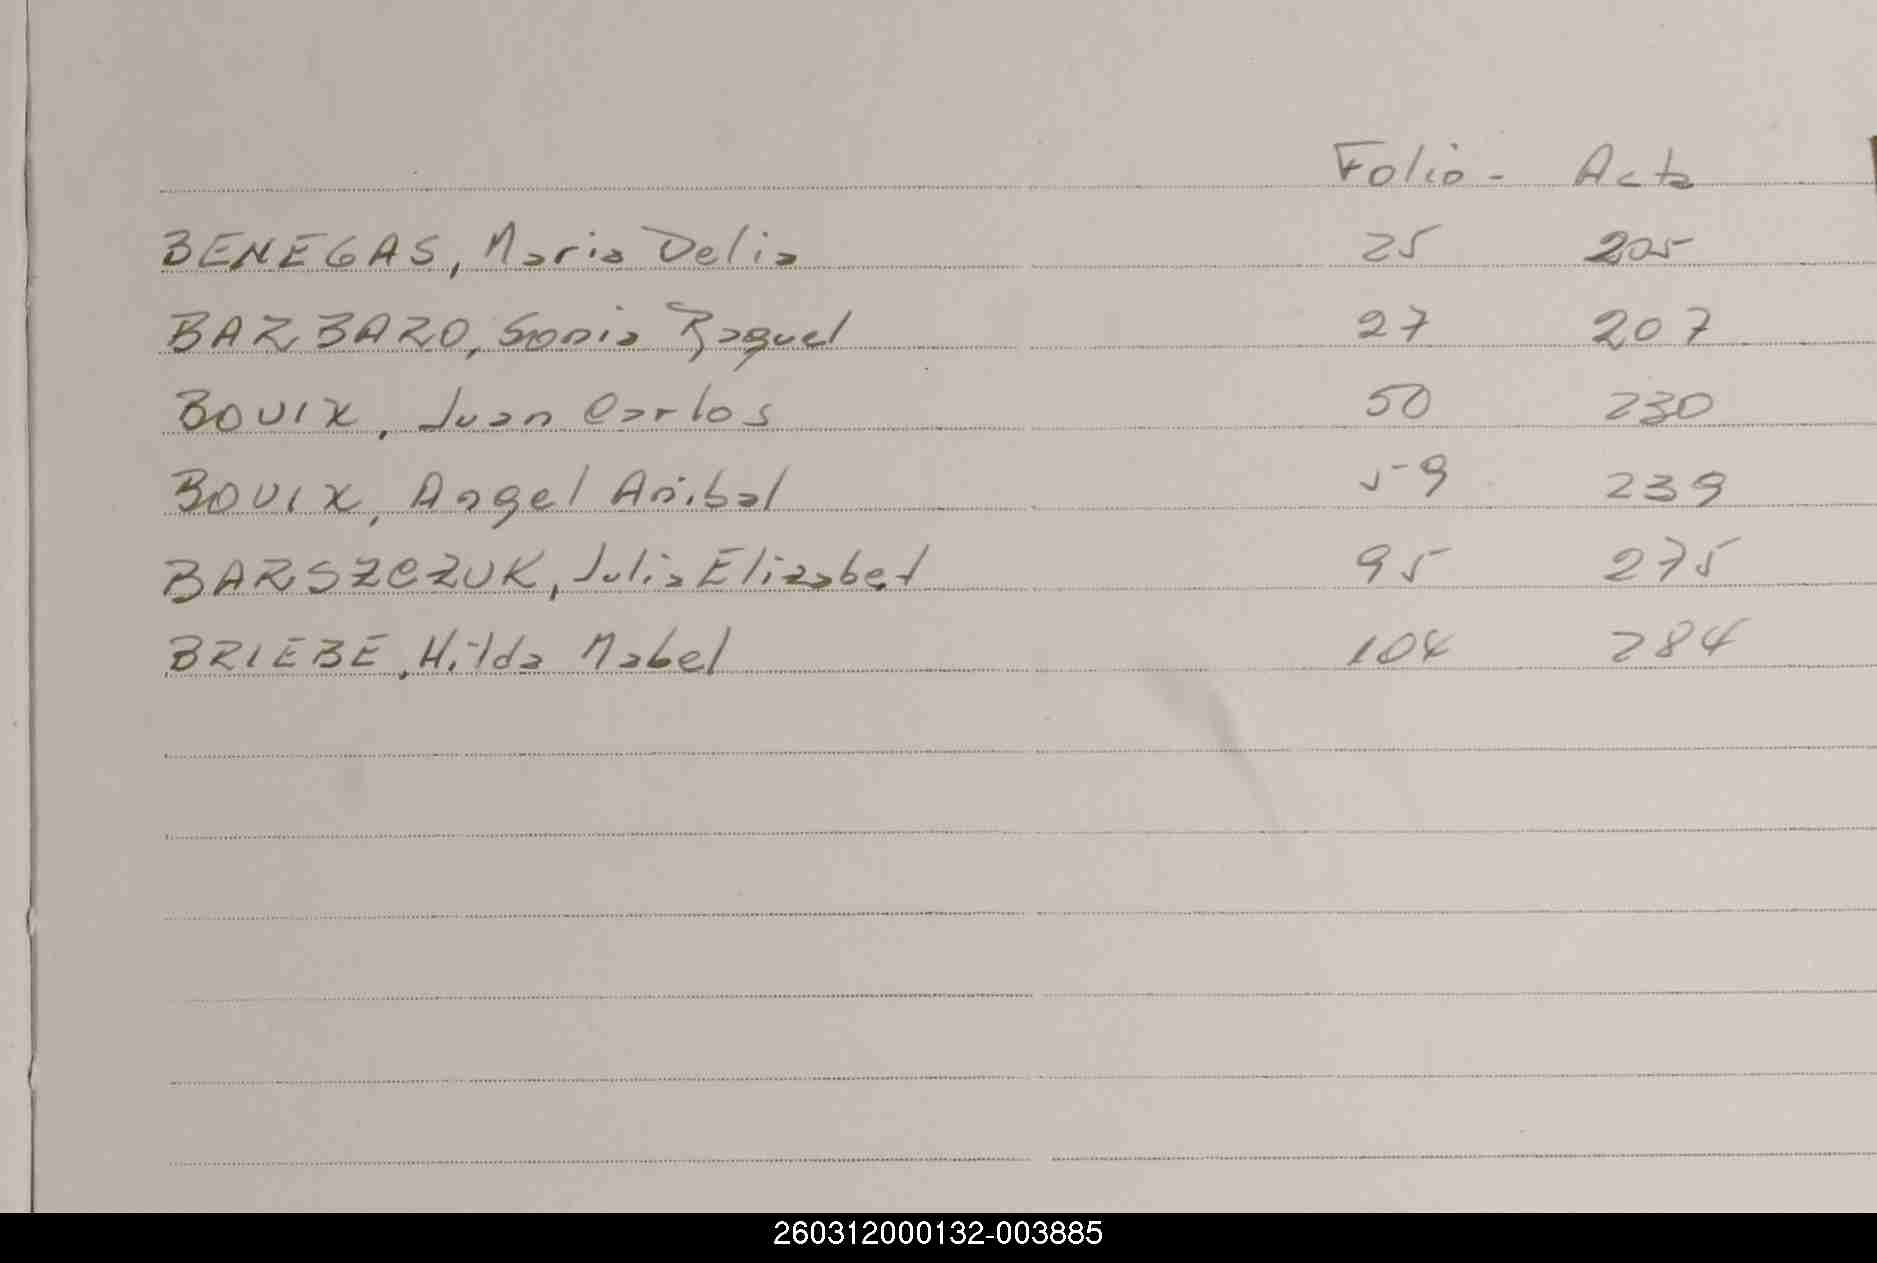 Folio - Acta
BENEGAS, Maria Delia 25 205
BARBARO, Sonia Raquel 27 207
BOUIX, Juan Carlos 50 230
BOUIX, Angel Anibal 59 239
BARSZCZUK, Julia Elizabet 95 275
BRIEBE, Hilda Mabel 104 284
260312000132-003885